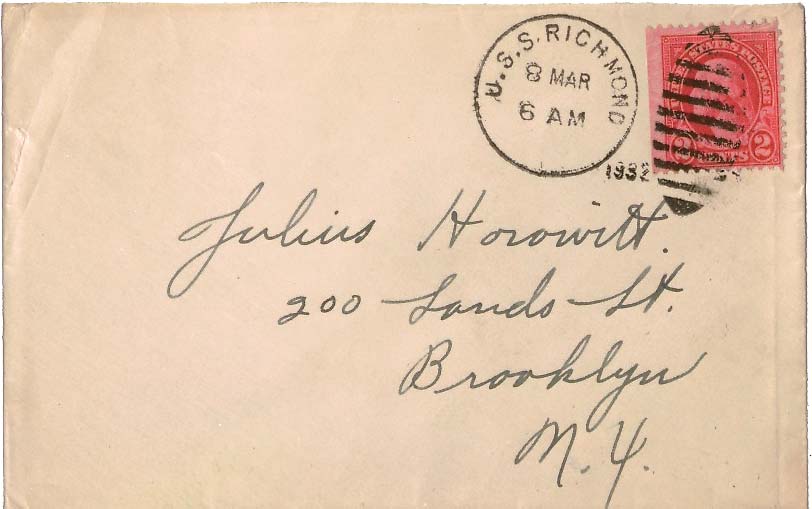 U.S.S. RICHMOND
8 MAR
6 AM
1932
2 CENTS 2
Julius Horowitt.
200 Sands St.
Brooklyn
N.Y.